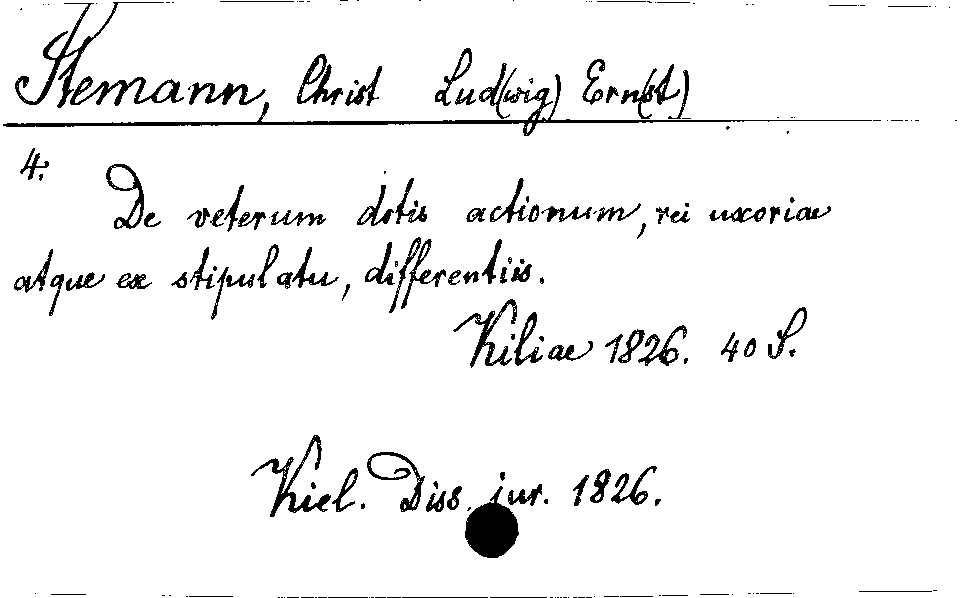 Stemann, Christ Ludw(ig) Ern(st)
4.
De veterum dotis actionum, rei uxoriae
atque ex stipulatu, differentiis.
Kiliae 1826. 40 S.
Kiel. Diss. jur. 1826.